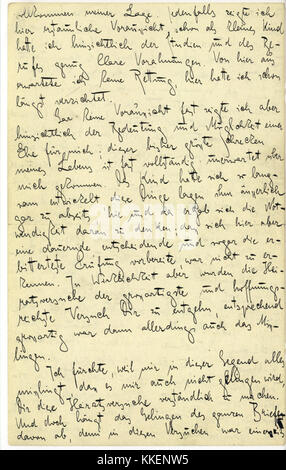 vollkommen meiner Lage. Jedenfalls zeigte ich
hier erstaunliche Voraussicht, schon als kleines Kind
hatte ich hinsichtlich der Studien und des Be-
rufes genug klare Vorahnungen. Von hier aus
erwartete ich keine Rettung, hier hatte ich schon
längst verzichtet.
Gar keine Voraussicht zeigte ich aber
hinsichtlich der Bedeutung und Möglichkeit einer
Ehe für mich; dieser bisher grösste Schrecken
meines Lebens ist fast vollständig unerwartet über
mich gekommen. Das Kind hatte sich so lang-
sam entwickelt, diese Dinge lagen ihm äusserlich
gar zu abseits; hie und da ergab sich die Not-
wendigkeit daran zu denken; dass sich hier aber
eine dauernde, entscheidende und sogar die er-
bittertste Prüfung vorbereite war nicht zu er-
kennen. In Wirklichkeit aber wurden die Hei-
ratsversuche der grossartigste und hoffnungs-
reichste Versuch Dir zu entgehn, entsprechend
grossartig war dann allerdings auch das Miss-
lingen.
Ich fürchte, weil mir in dieser Gegend alles
misslingt, dass es mir auch nicht gelingen wird,
Dir diese Heiratsversuche verständlich zu machen.
Und doch hängt das Gelingen des ganzen Briefes
davon ab, denn in diesen Versuchen war einerseits
alamy
Image ID: KKENW5
www.alamy.com